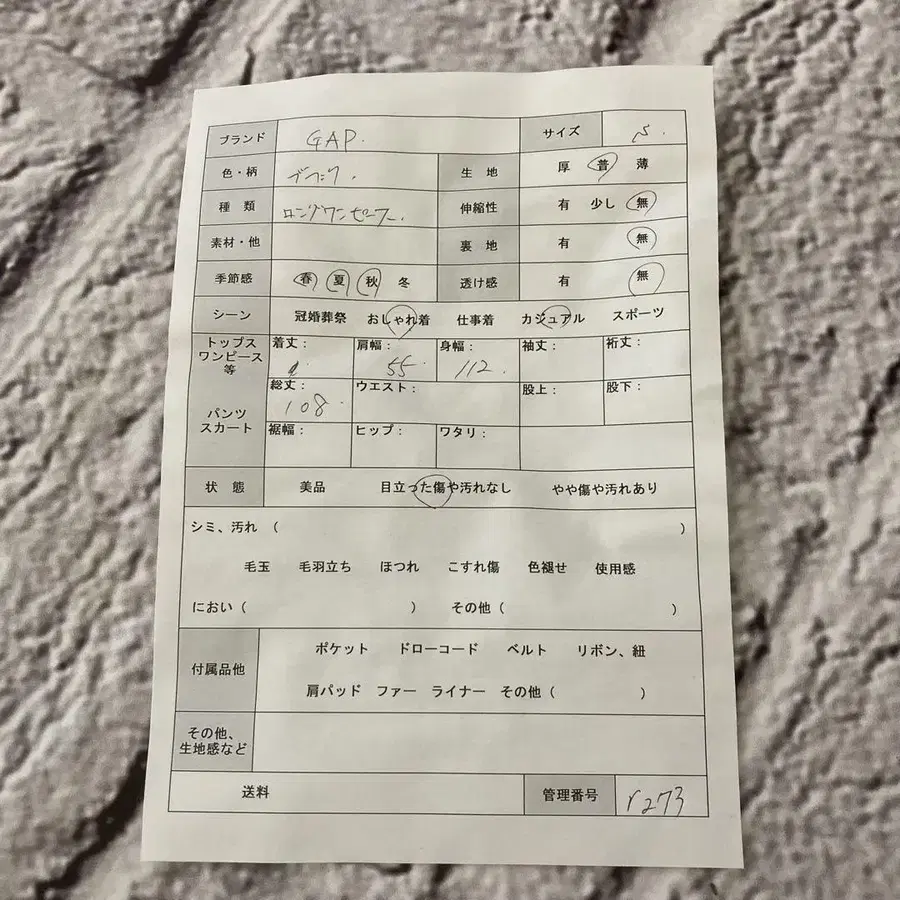 ブランド GAP. サイズ S.
色・柄 ブラック. 生 地 厚 普 薄
種 類 ロングワンピース. 伸縮性 有 少し 無
素材・他 裏 地 有 無
季節感 春 夏 秋 冬 透け感 有 無
シーン 冠婚葬祭 おしゃれ着 仕事着 カジュアル スポーツ
トップス ワンピース 等 着丈: 肩幅: 55 身幅: 112. 袖丈: 裄丈:
パンツ スカート 総丈: 108. ウエスト: 股上: 股下:
裾幅: ヒップ: ワタリ:
状 態 美品 目立った傷や汚れなし やや傷や汚れあり
シミ、汚れ ( )
毛玉 毛羽立ち ほつれ こすれ傷 色褪せ 使用感
におい ( ) その他 ( )
付属品他 ポケット ドローコード ベルト リボン、紐
肩パッド ファー ライナー その他 ( )
その他、
生地感など
送料 管理番号 r273